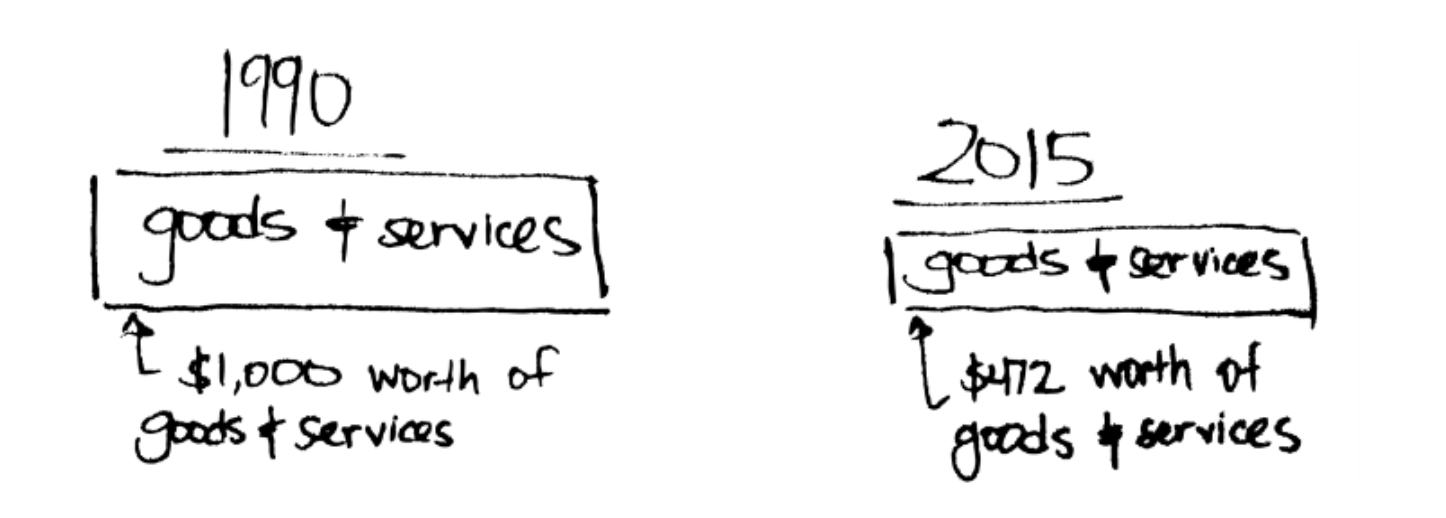 1990
goods & services
$1,000 worth of
goods & services
2015
goods & services
$472 worth of
goods & services